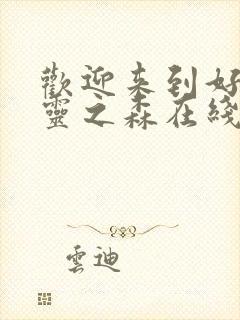 歡迎来到好
靈之森在綫
雲迪